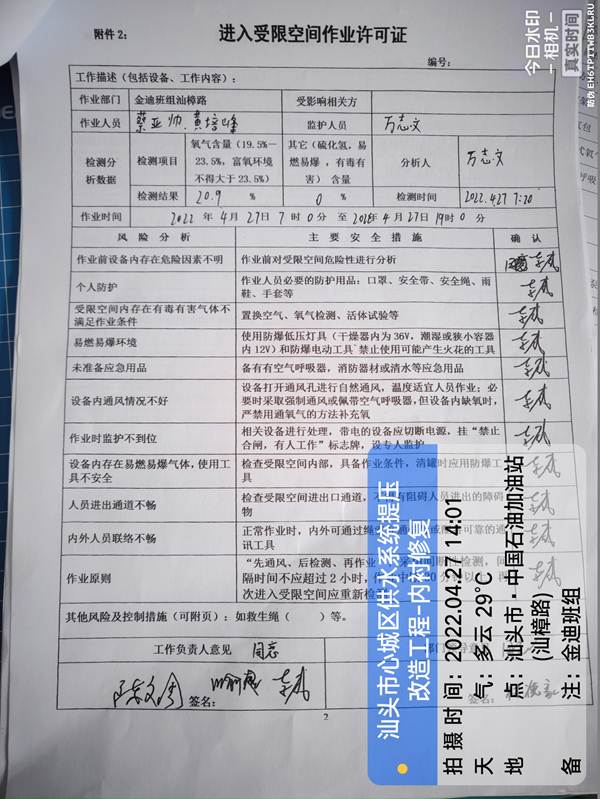 附件2:
进入受限空间作业许可证
编号:
工作描述（包括设备、工作内容）:
作业部门 金迪班组汕樟路 受影响相关方
作业人员 蔡亚帅、黄培峰 监护人员 万志文
检测分析数据 检测项目 氧气含量（19.5%－23.5%，富氧环境不得大于23.5%） 其它（硫化氢，易燃易爆，有毒有害）含量 分析人 万志文
检测结果 20.9 % 0 % 检测时间 2022.4.27 7:20
作业时间 2022年4月27日7时0分至2022年4月27日19时0分
风险分析 主要安全措施 确认
作业前设备内存在危险因素不明 作业前对受限空间危险性进行分析
个人防护 作业人员必要的防护用品：口罩、安全带、安全绳、雨鞋、手套等
受限空间内存在有毒有害气体不满足作业条件 置换空气、氧气检测、活体试验等
易燃易爆环境 使用防爆低压灯具（干燥器内为36V，潮湿或狭小容器内12V）和防爆电动工具 禁止使用可能产生火花的工具
未准备应急用品 备有空气呼吸器，消防器材或清水等应急用品
设备内通风情况不好 设备打开通风孔进行自然通风，温度适宜人员作业；必要时采取强制通风或佩带空气呼吸器，但设备内缺氧时，严禁用通氧气的方法补充氧
作业时监护不到位 相关设备进行处理，带电的设备应切断电源，挂“禁止合闸，有人工作”标志牌，设专人监护
设备内存在易燃易爆气体，使用工具不安全 检查受限空间内部，具备作业条件，清罐时应用防爆工具
人员进出通道不畅 检查受限空间进出口通道，不 有阻碍人员进出的障碍物
内外人员联络不畅 正常作业时，内外可通过绳 可靠的通讯工具
作业原则 “先通风、后检测、再作业 检测，间隔时间不应超过2小时， 再次进入受限空间应重新检
其他风险及控制措施（可附页）：如救生绳（ ）等。
工作负责人意见 同意
签名：
签名：
2
汕头市中心城区供水系统提压
改造工程-内衬修复
拍摄时间：2022.04.27 14:01
天 气：多云 29°C
地 点：汕头市·中国石油加油站
(汕樟路)
备 注：金迪班组
今日水印
-相机-
真实时间
防伪 EH6TPTTWB3KLRU